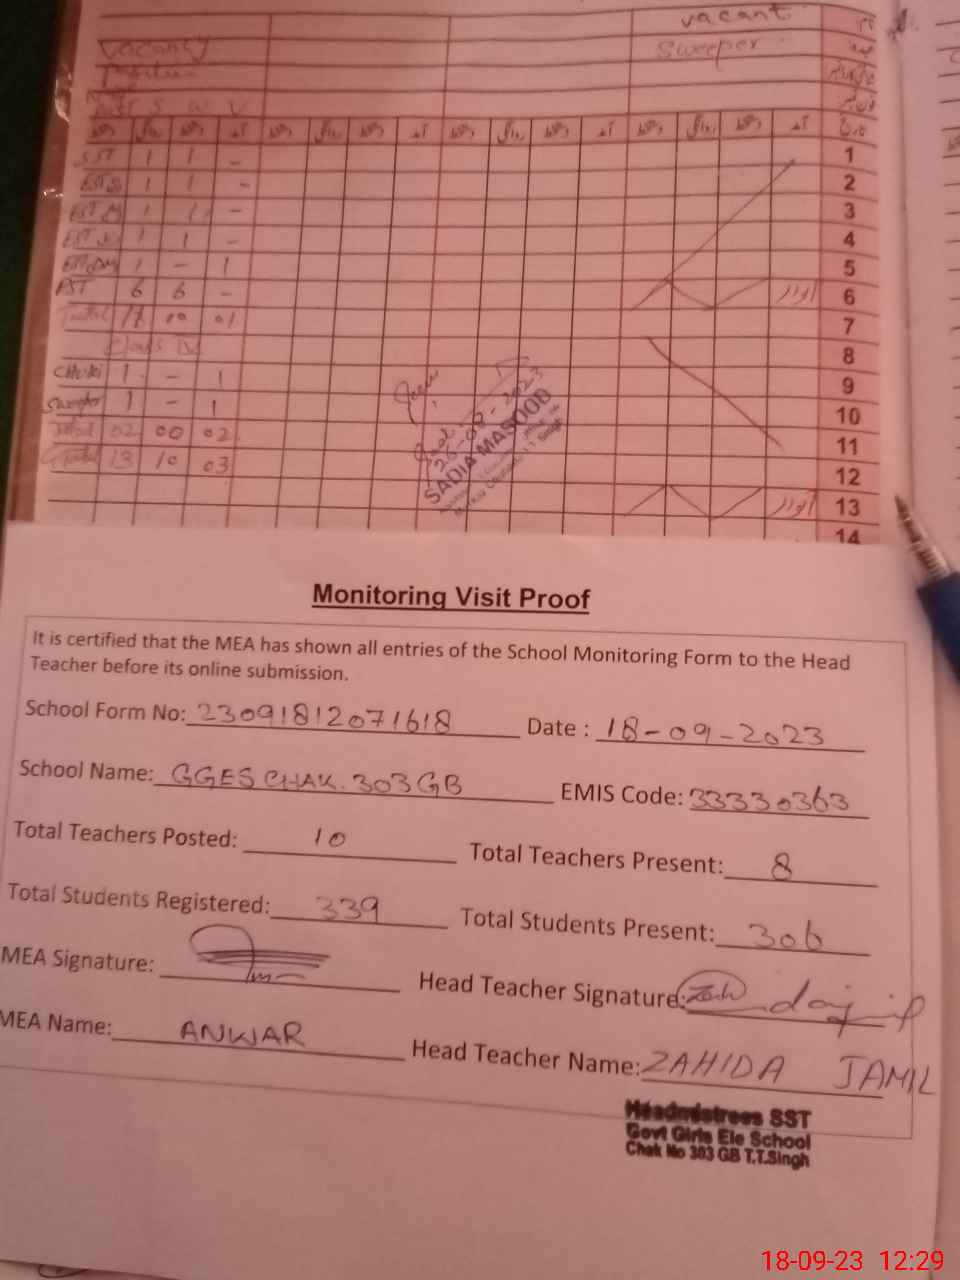 vacant
Vacancy
Sweeper
S W V
دستخط روانگی دستخط آمد دستخط روانگی دستخط آمد دستخط روانگی دستخط آمد دستخط روانگی دستخط آمد تاریخ
SST 1 1 - 1
1 1 - 2
1 1 - 3
1 1 - 4
1 - 1 5
PST 6 6 - اتوار 6
Total 10 01 7
Class IV 8
1 - 1 9
Sweeper 1 - 1 10
Total 02 00 02 11
Total 13 10 03 12
اتوار 13
14
26-08-2023
SADIA MASOOD
Monitoring Visit Proof
It is certified that the MEA has shown all entries of the School Monitoring Form to the Head
Teacher before its online submission.
School Form No: 23091812071618 Date : 18-09-2023
School Name: GGES CHAK. 303 GB EMIS Code: 33330363
Total Teachers Posted: 10 Total Teachers Present: 8
Total Students Registered: 339 Total Students Present: 306
MEA Signature: Head Teacher Signature:
MEA Name: ANWAR Head Teacher Name: ZAHIDA JAMIL
Headmistrees SST
Govt Girls Ele School
Chak No 303 GB T.T.Singh
18-09-23 12:29